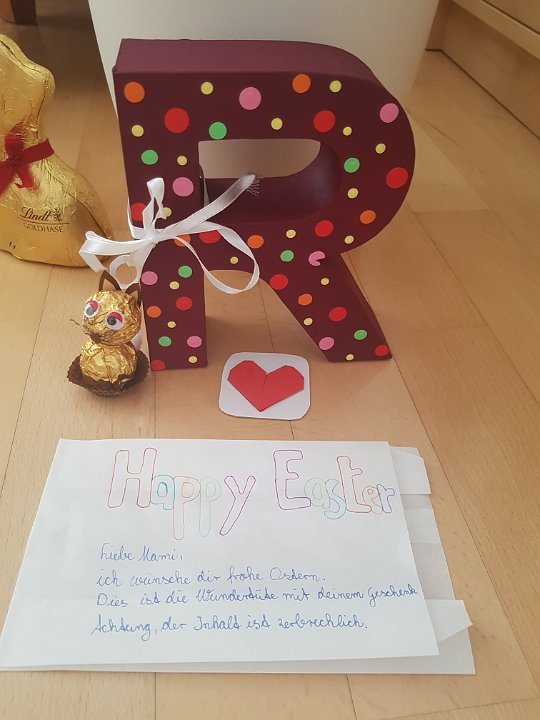 R
Lindt
GOLDHASE
Happy Easter
Liebe Mami,
ich wünsche dir frohe Ostern.
Dies ist die Wundertüte mit deinem Geschenk
Achtung, der Inhalt ist zerbrechlich.